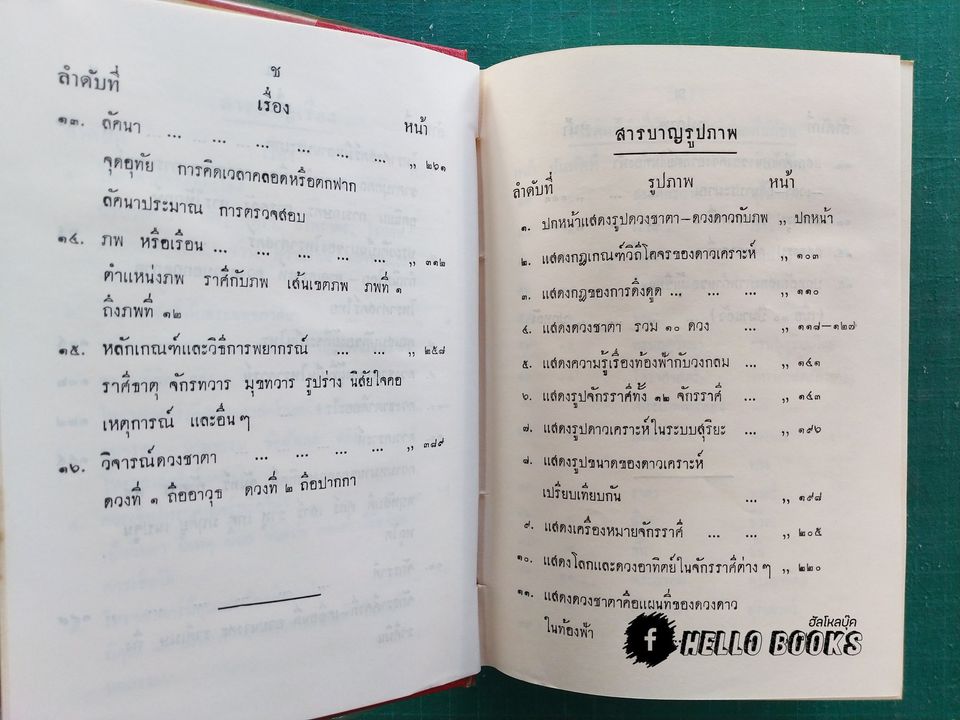 ช
ลำดับที่ เรื่อง หน้า
๑๓. ลัคนา ... ... ... ... ... ... ,, ๒๖๑
จุดอุทัย การคิดเวลาคลอดหรือตกฟาก
ลัคนาประมาณ การตรวจสอบ
๑๔. ภพ หรือเรือน ... ... ... ... ... ,, ๓๑๒
ตำแหน่งภพ ราศีกับภพ เส้นเขตภพ ภพที่ ๑
ถึงภพที่ ๑๒
๑๕. หลักเกณฑ์และวิธีการพยากรณ์ ... ... ,, ๒๕๘
ราศีธาตุ จักรทวาร มุขทวาร รูปร่าง นิสัยใจคอ
เหตุการณ์ และอื่นๆ
๑๖. วิจารณ์ดวงชาตา ... ... ... ... ,, ๓๘๙
ดวงที่ ๑ ถืออาวุธ ดวงที่ ๒ ถือปากกา
สารบาญรูปภาพ
ลำดับที่ รูปภาพ หน้า
๑. ปกหน้าแสดงรูปดวงชาตา–ดวงดาวกับภพ ,, ปกหน้า
๒. แสดงกฎเกณฑ์วิถีโคจรของดาวเคราะห์ ,, ๑๐๓
๓. แสดงกฎของการดึงดูด ... ... ... ,, ๑๑๐
๔. แสดงดวงชาตา รวม ๑๐ ดวง ... ,, ๑๑๘–๑๒๗
๕. แสดงความรู้เรื่องท้องฟ้ากับวงกลม ... ,, ๑๔๑
๖. แสดงรูปจักรราศีทั้ง ๑๒ จักรราศี ... ,, ๑๔๓
๗. แสดงรูปดาวเคราะห์ในระบบสุริยะ ... ,, ๑๙๖
๘. แสดงรูปขนาดของดาวเคราะห์
เปรียบเทียบกัน ... ,, ๑๙๘
๙. แสดงเครื่องหมายจักรราศี ... ... ,, ๒๐๕
๑๐. แสดงโลกและดวงอาทิตย์ในจักรราศีต่างๆ ,, ๒๒๐
๑๑. แสดงดวงชาตาคือแผนที่ของดวงดาว
ในท้องฟ้า
ฮัลโหลบุ๊ค
f HELLO BOOKS